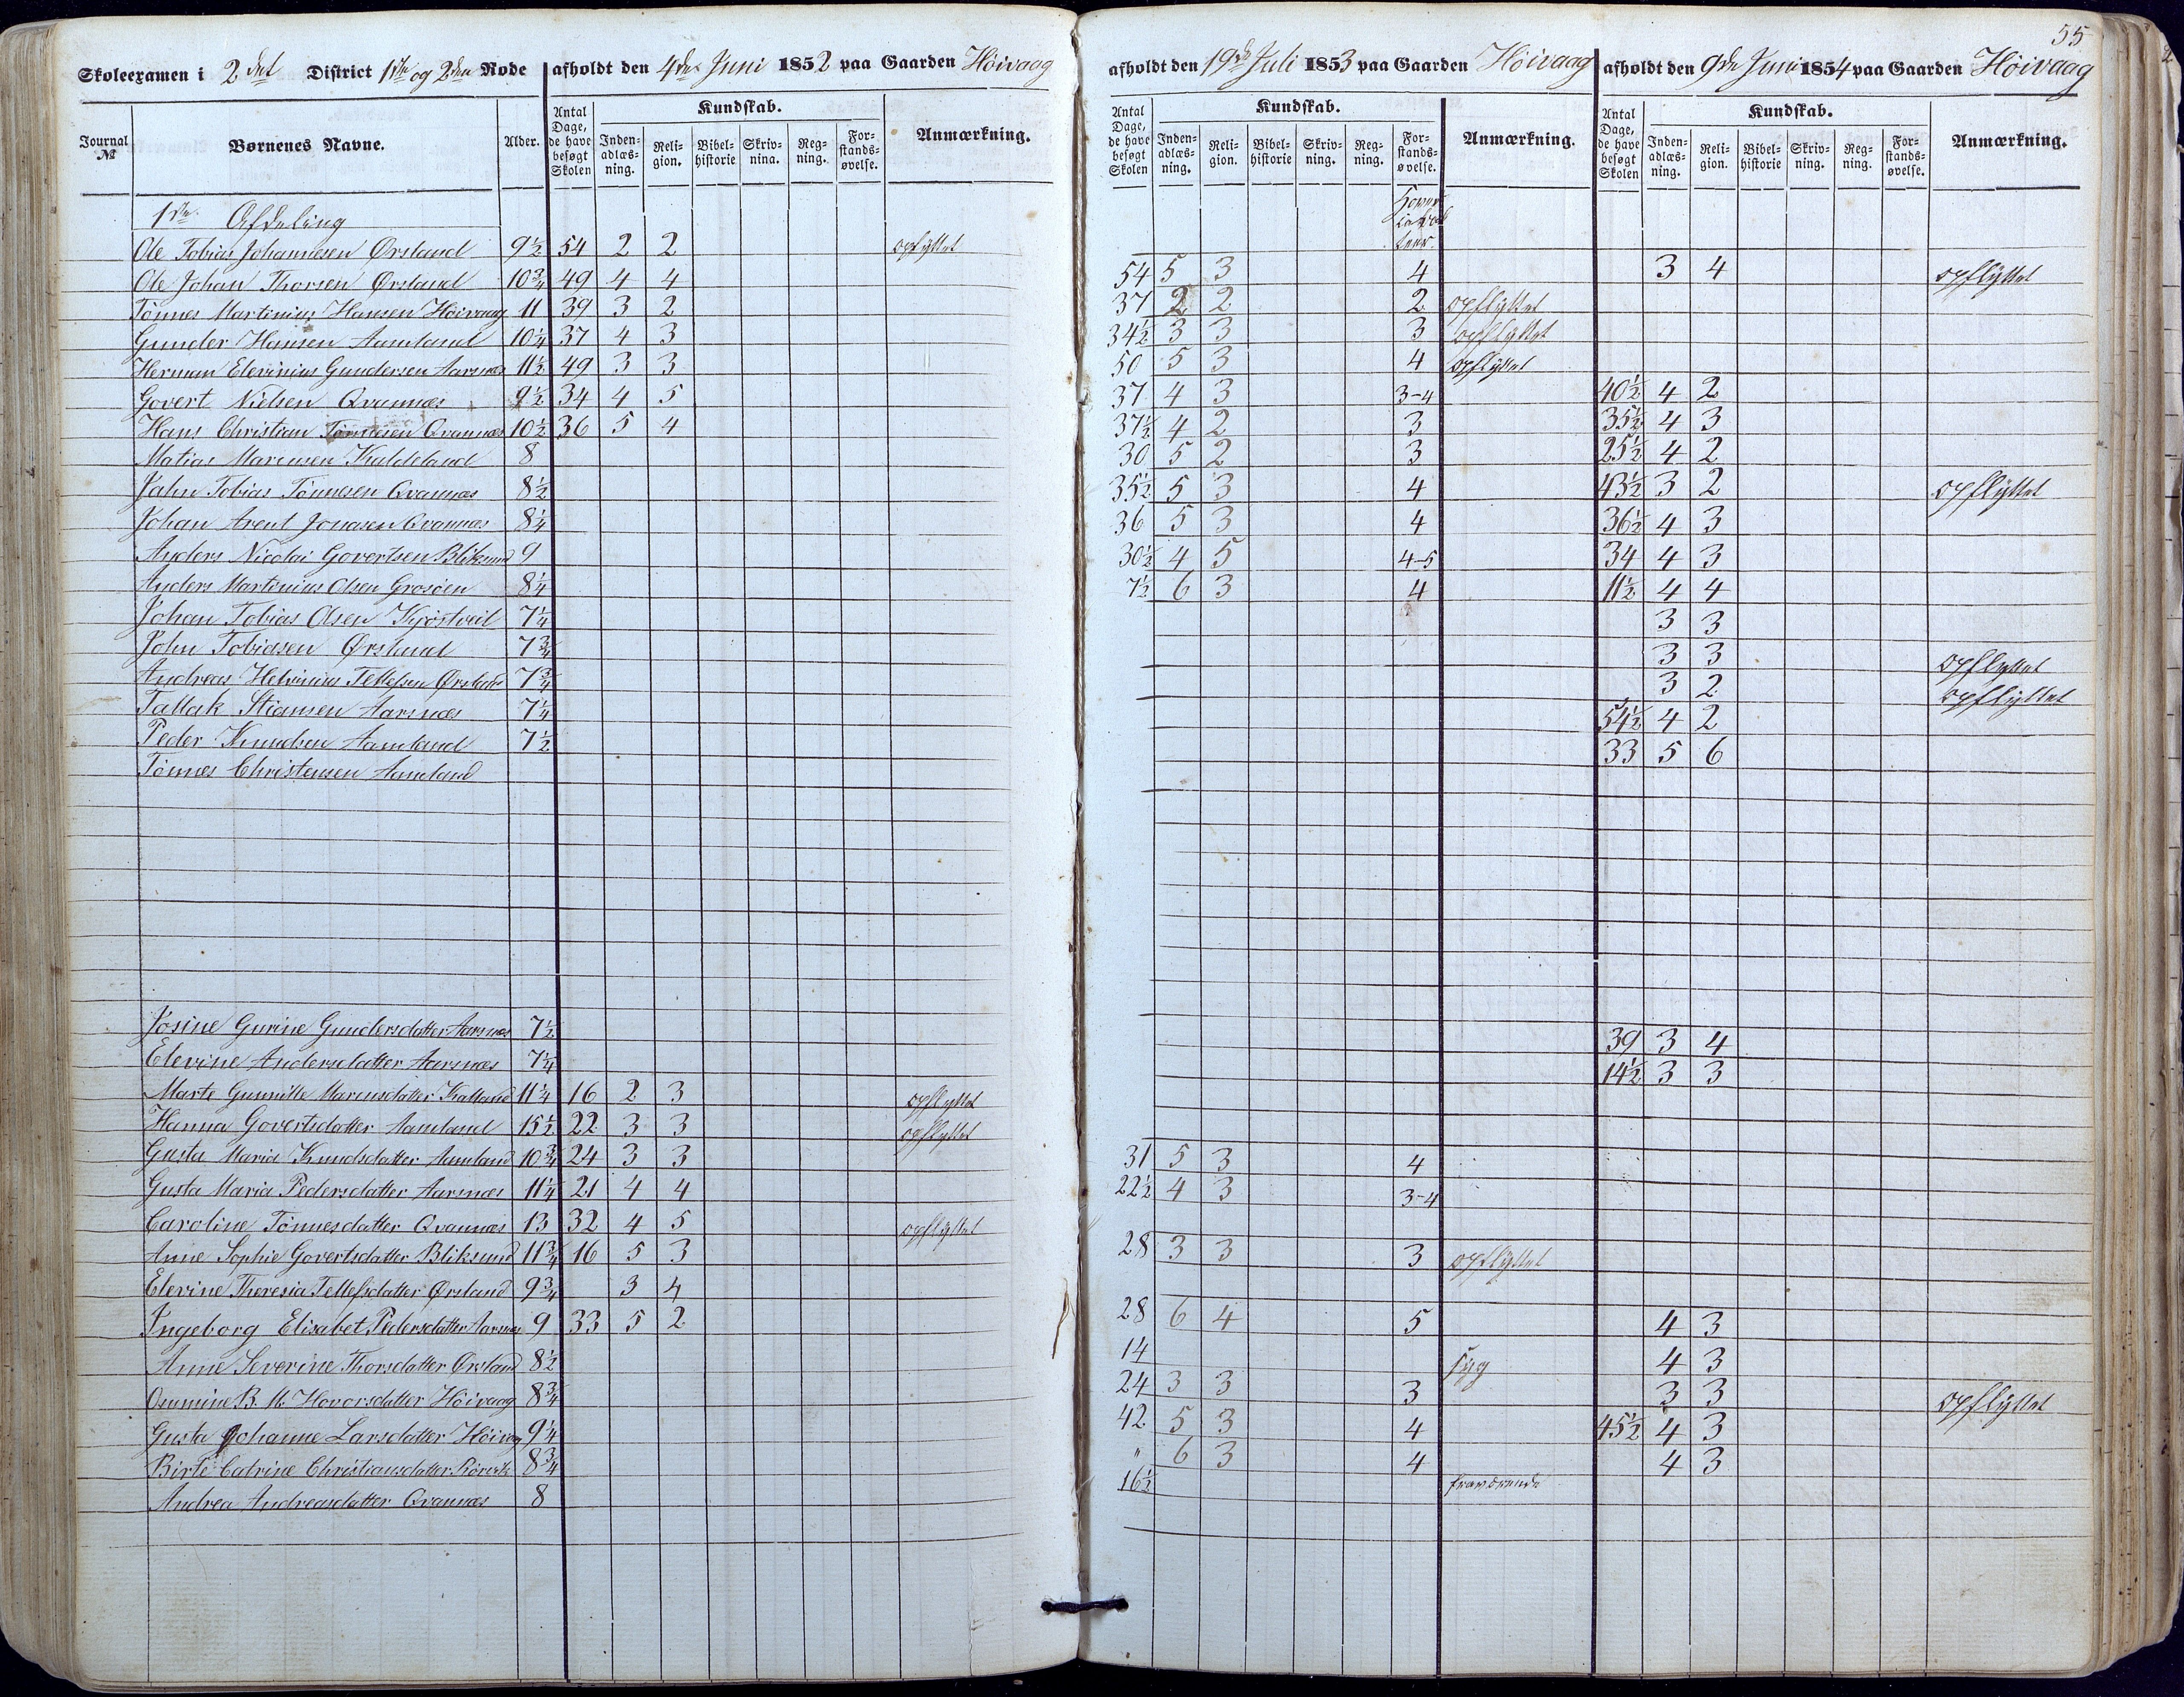 55
Skoleexamen i 2det District 1ste og 2den Rode afholdt den 4de Juni 1852 paa Gaarden Höivaag afholdt den 19de Juli 1853 paa Gaarden Höivaag afholdt den 9de Juni 1854 paa Gaarden Höivaag
Journal № Børnenes Navne. Alder. Antal Dage, de have besøgt Skolen Kundskab. Anmærkning. Antal Dage, de have besøgt Skolen Kundskab. Anmærkning. Antal Dage, de have besøgt Skolen Kundskab. Anmærkning.
Inden-adlæs-ning. Reli-gion. Bibel-historie Skriv-nina. Reg-ning. For-stands-øvelse. Inden-adlæs-ning. Reli-gion. Bibel-historie Skriv-ning. Reg-ning. For-stands-øvelse. Inden-adlæs-ning. Reli-gion. Bibel-historie Skriv-ning. Reg-ning. For-stands-øvelse.
1ste Afdeling
Ole Tobias Johannesen Ørsland 9½ 54 2 2 opflyttet
Ole Johan Thorsen Ørsland 10¾ 49 4 4 54 5 3 4 3 4 opflyttet
Tönnes Martinius Hansen Höivaag 11 39 3 2 37 2 2 2 opflyttet
Gunder Hansen Aamland 10¼ 37 4 3 34½ 3 3 3 opflyttet
Herman Elevinius Gundersen Aarsnæs 11½ 49 3 3 50 5 3 4 opflyttet
Govert Nielsen Qvannæs 9½ 34 4 5 37 4 3 3-4 40½ 4 2
Hans Christian Tönnesen Qvannæs 10½ 36 5 4 37½ 4 2 3 35½ 4 3
Matias Marcusen Kaldeland 8 30 5 2 3 25½ 4 2
Jahn Tobias Tönnesen Qvannæs 8½ 35½ 5 3 4 43½ 3 2 opflyttet
Johan Arent Jonasen Qvannæs 8¼ 36 5 3 4 36½ 4 3
Anders Nicolai Govertsen Bliksund 9 30½ 4 5 4-5 34 4 3
Anders Martinius Olsen Grosöen 8¼ 7½ 6 3 4 11½ 4 4
Johan Tobias Olsen Kjöstveit 7¼ 3 3
John Tobiasen Ørsland 7¾ 3 3 opflyttet
Andreas Helvinius Tellefsen Ørsland 7¾ 3 2 opflyttet
Tallak Stiansen Aarsnæs 7¼ 54½ 4 2
Peder Knudsen Aamland 7½ 33 5 6
Tönnes Christensen Aamland
Josine Gurine Gundersdatter Aarsnæs 7½ 39 3 4
Elevine Andersdatter Aarsnæs 7¼ 14½ 3 3
Marte Gunnille Marcusdatter Kalland 11¼ 16 2 3 opflyttet
Hanna Govertsdatter Aamland 15½ 22 3 3 opflyttet
Gusta Maria Knudsdatter Aamland 10¾ 24 3 3 31 5 3 4
Gusta Maria Pedersdatter Aarsnæs 11¼ 21 4 4 22½ 4 3 3-4
Caroline Tönnesdatter Qvannæs 13 32 4 5 opflyttet
Anne Sophie Govertsdatter Bliksund 11¾ 16 5 3 28 3 3 3 opflyttet
Elevine Theresia Tellefsdatter Ørsland 9¾ 3 4
Ingeborg Elisabet Pedersdatter Aarsnæs 9 33 5 2 28 6 4 5 4 3
Anne Severine Thorsdatter Ørsland 8½ 14 syg 4 3
Ommine B. M. Hovorsdatter Höivaag 8¾ 24 3 3 3 3 3 opflyttet
Gusta Johanne Larsdatter Höivaag 9¼ 42 5 3 4 45½ 4 3
Birte Catrine Christiansdatter 8¾ " 6 3 4 4 3
Andrea Andreasdatter Qvannæs 8 16½ fraværende